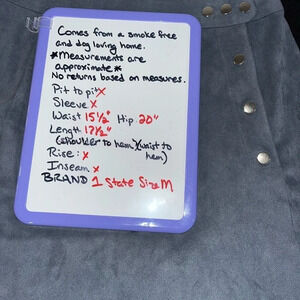 Comes from a smoke free
and dog loving home.
*Measurements are
approximate*
No returns based on measures.
Pit to pit X
Sleeve X
Waist 15½" Hip 20"
Length 17½"
(shoulder to hem)(waist to
hem)
Rise: X
Inseam X
BRAND 1 State Size M